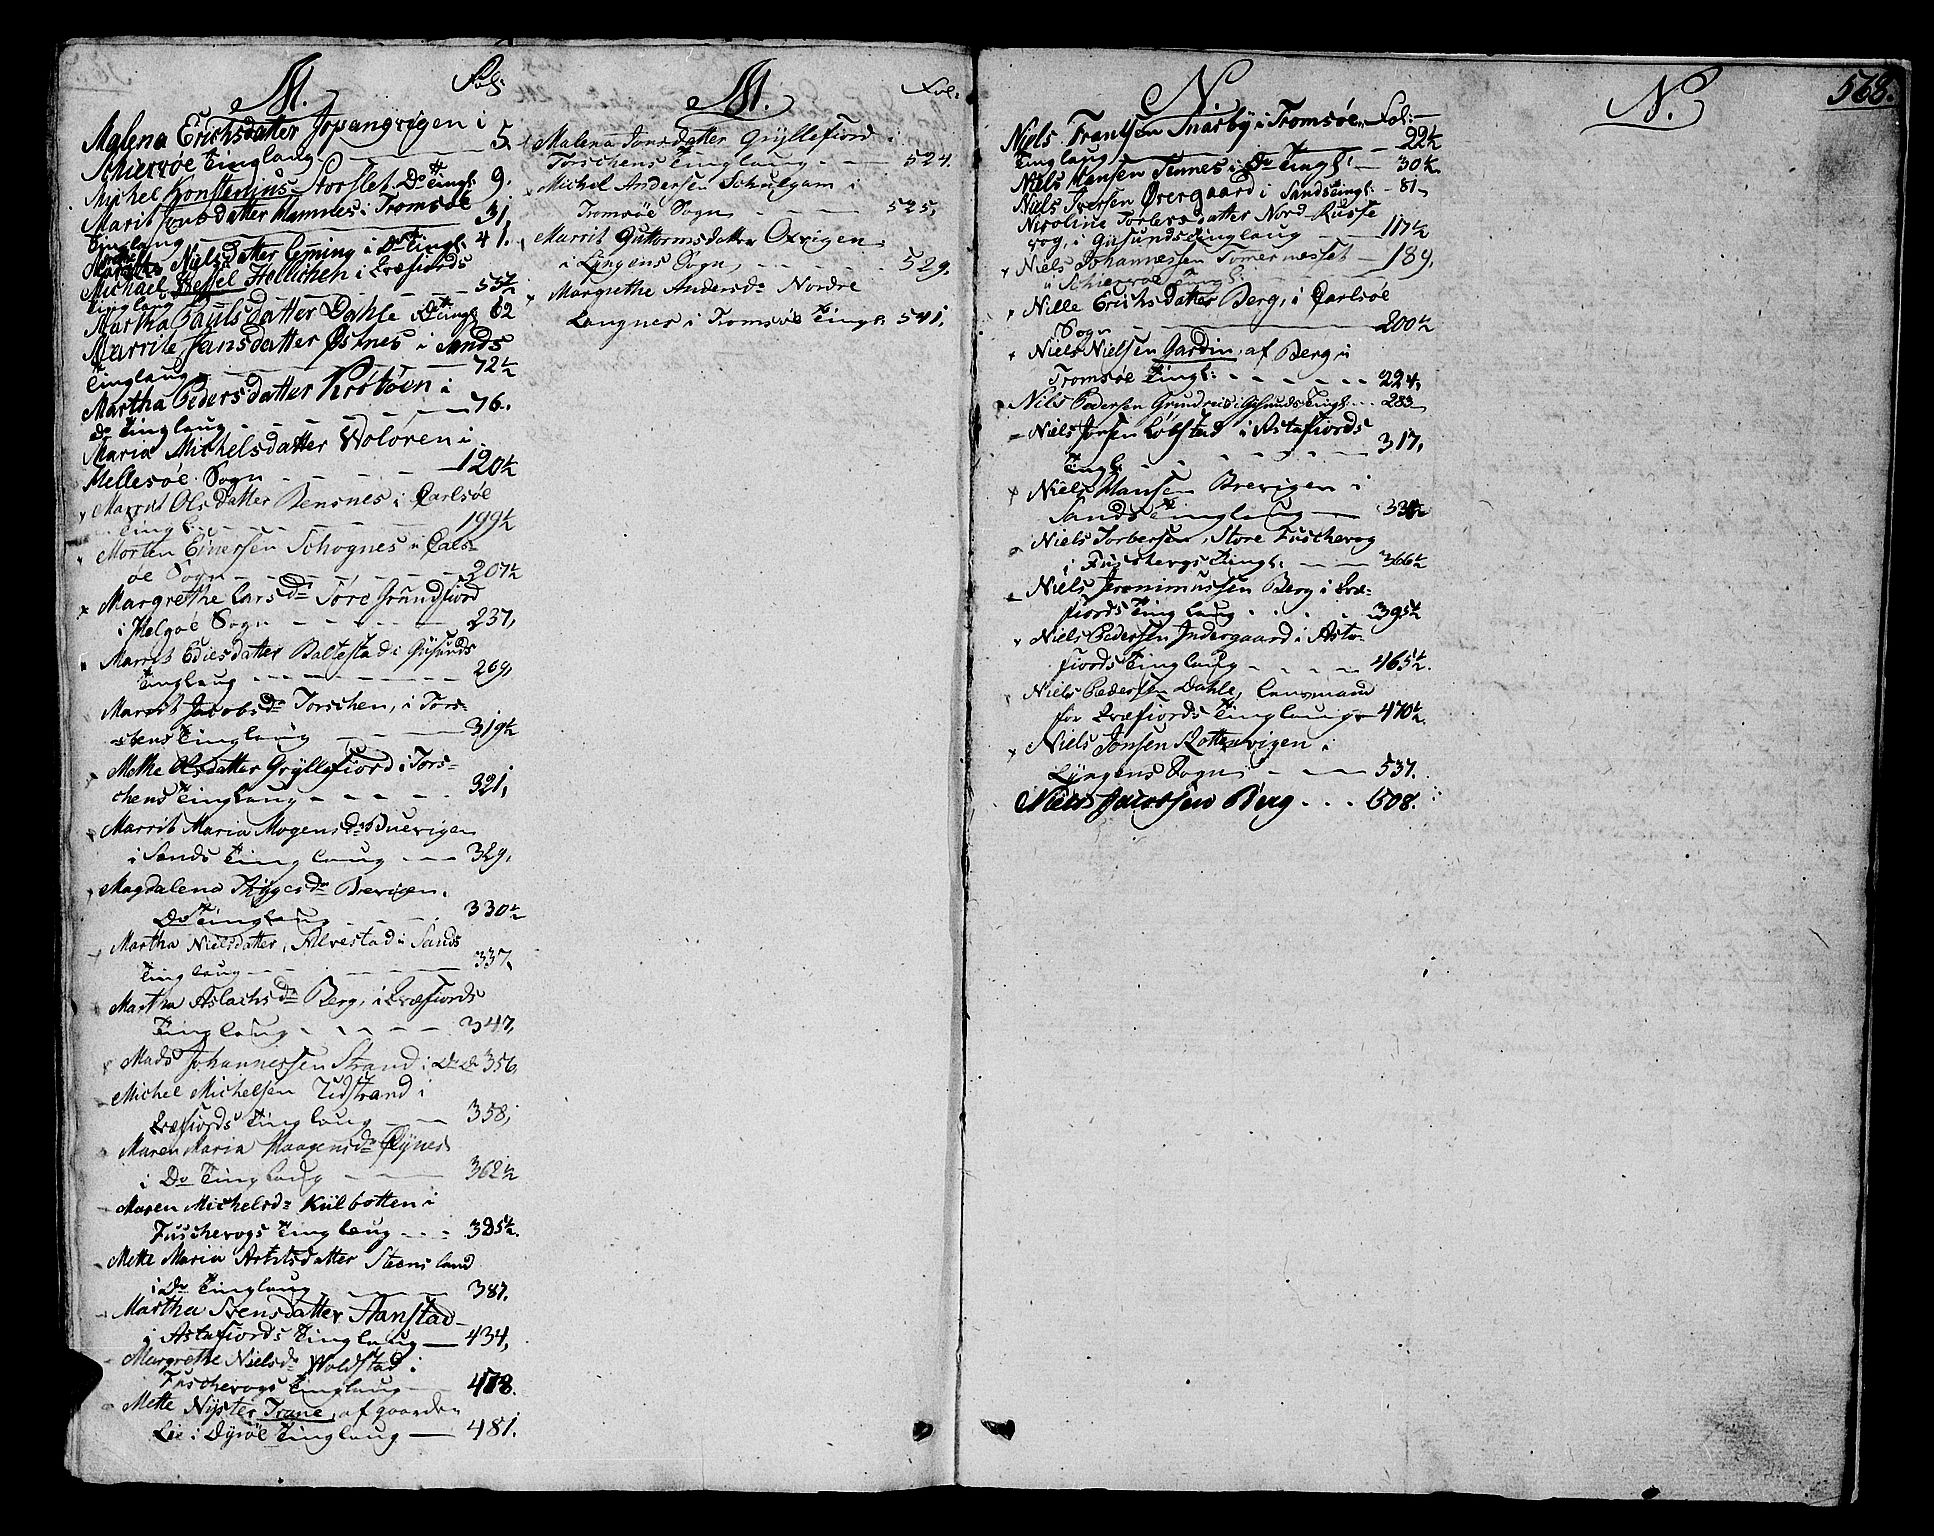 M.
Fol:
Malena Erichsdatter Jopangvigen i
Schiervøe Tinglaug - - - 5.
Michel Konstenius Storslet Do Tingl. 9.
Marit Jonsdatter Hamnes i Tromsøe
Tinglaug - - - 31,
Nielsdatter i Do Tingl. 41.
Michael Hessel Helluchen i Bræfiords
Tinglaug - - - 55½
Martha Paulsdatter Dahle Do Tingl. 62
Marrite Hansdatter Østnes i Sands
Tinglaug - - - 72½
Martha Pedersdatter Krokøen i
do Tinglaug - - - 76.
Maria Michelsdatter Woløren i
Hellesøe Sogn - - - 120½
Marrit Olsdatter Bensnes i Carlsøe
Tingl. - - - 199½
Morten Ejnersen Schognes i Cals-
øe Sogn - - - 207½
Margrethe Larsdr Tore Grundfiord
i Helgøe Sogn - - - 237,
Marrit Edisdatter Baltestad i Gisunds
Tinglaug - - - 269,
Marrit Jacobsdr Torschen, i Tors-
chens Tinglaug - - - 319½
Mette Olsdatter Gryllefiord i Tors-
chens Tinglaug - - - 321,
Marrit Maria Mogensdr Buevigen
i Sands Tinglaug - - - 329,
Magdalena Thygesdr Brevigen.
Do Tinglaug - - - 330½
Martha Nielsdatter, Alvestad i Sands
Tinglaug - - - 337,
Martha Aslachsdr Berg, i Bræfiords
Tinglaug - - - 347,
Mads Johannessen Strand i Do Do 356,
Michel Michelsen Tidstrand i
Bræfiords Tinglaug - - 358,
Maren Maria Haagensdr Glynes
i Do Tinglaug - - - 362½
Maren Michelsdr Kulbotten i
Fuschevogs Tinglaug - - - 385½
Mette Maria Arntsdatter Steensland
i Do Tinglaug - - - 387.
Martha Svensdatter Aanstad
i Astafiords Tinglaug - 434,
Margrethe Nielsdr Woldstad i
Fuschevogs Tinglaug - 478.
Mette Nyster Trane, af gaarden
Lie i Dyrøe Tinglaug - 481.
M.
Fol:
Malena Jonsdatter Gryllefiord i
Torschens Tinglaug - - 524.
Michel Andersen Schulgam i
Tromsøe Sogn - - - 525,
Marrit Guttormsdatter Oxvigen
i Lyngens Sogn - - - 529,
Margrethe Andersdr Nordre
Langnes i Tromsøe Tingl. 541,
N.
Niels Frantsen Snarby i Tromsøe Fol:
Tinglaug - - - 22½
Niels Hansen Tennes i Do Tingl. - 30½
Niels Iversen Øvergaard i Sands Tingl. - 81
Nicolina Torbersdatter Nord-Russe
vog, i Gisunds Tinglaug - 117½
Niels Johannessen Tomernesset - 189,
i Schiervøe Tingl.
Nille Erichsdatter Berg, i Carlsøe
Sogn - - - 200½
Niels Nielsen Gardin, af Berg i
Tromsøe Tingl: - - - 224,
Nils Pedersen Grundreis i Gisunds Tingl. . . 283
Niels Jonsen Løbstad i Astafiords
Tingl. - - - 317,
Niels Hansen Brevigen i
Sands Tinglaug - 331½
Niels Torbersen, Store Fuschevog
i Fuschevogs Tingl. - - 366½
Niels Jeronimussen Berg i Bræ-
fiords Tinglaug . . . 395½
Niels Pedersen Indergaard i Asta-
fiords Tinglaug - - - 465½.
Niels Pedersen Dahle, Lensmand
for Bræfiords Tinglaug 470½.
Niels Jonsen Rottenvigen i
Lyngens Sogn - - - 537.
Niels Jacobsen Berg . . . 508.
N.
568.